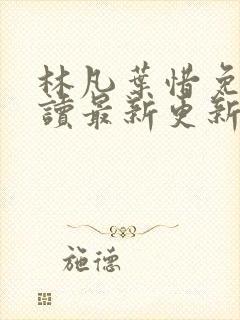 林凡葉惜免
讀最新更新
施德